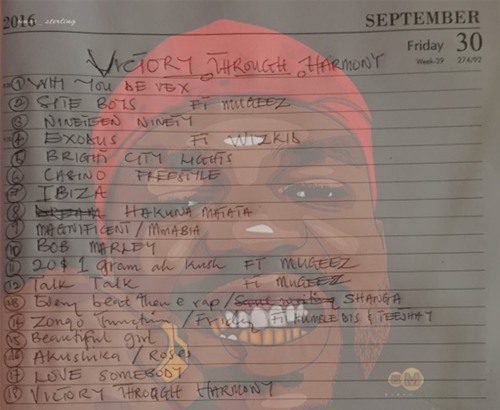 2016
sterling
SEPTEMBER
Friday 30
Week-39 274/92
VICTORY THROUGH HARMONY
① WHY YOU DE VEX
② SITE BOYS FT MUGEEZ
③ NINETEEN NINETY
④ EXODUS Ft WIZKID
⑤ BRIGHT CITY LIGHTS
⑥ CASINO FREESTYLE
⑦ IBIZA
⑧ HAKUNA MATATA
⑨ MAGNIFICENT / MMABIA
⑩ BOB MARLEY
⑪ 20$ 1 gram ah kush FT MUGEEZ
⑫ Talk Talk Ft MUGEEZ
⑬ Every beat them e rap / SHANGA
⑭ Zongo Junction / Ft KUMBLE DIS & TEEJHAY
⑮ Beautiful girl
⑯ Akushika / Roses
⑰ LOVE SOMEBODY
⑱ VICTORY THROUGH HARMONY